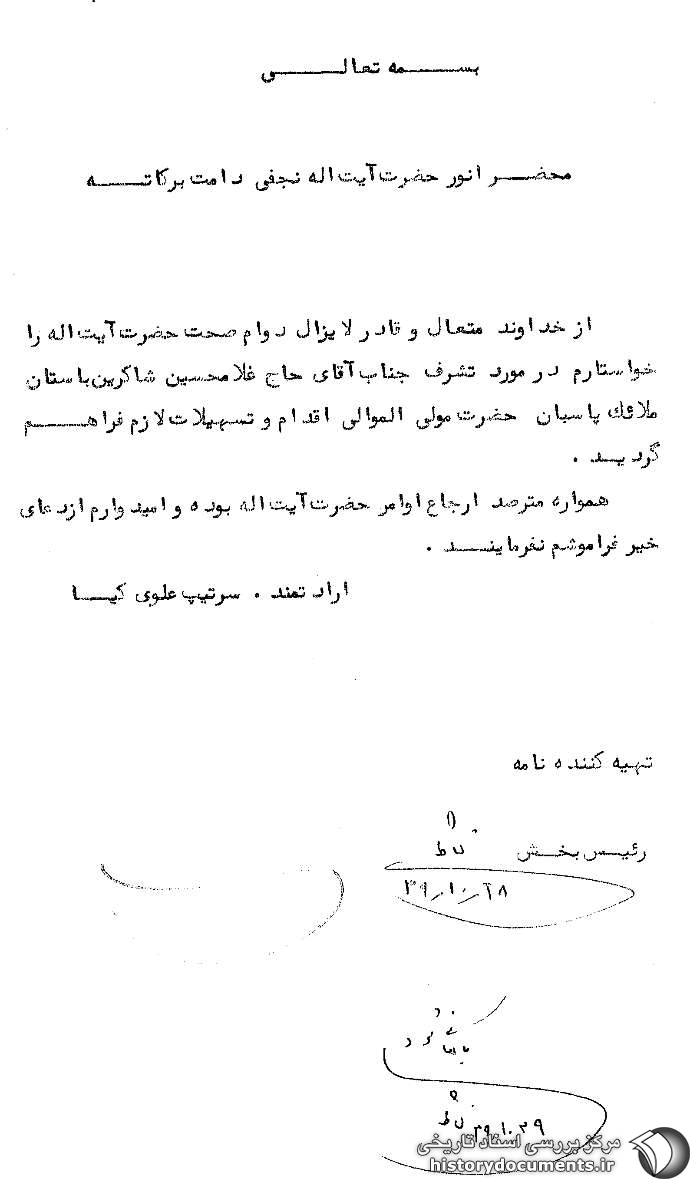 بسمه تعالی
محضر انور حضرت آیت اله نجفی دامت برکاته
از خداوند متعال و قادر لایزال دوام صحت حضرت آیت اله را
خواستارم در مورد تشرف جناب آقای حاج غلامحسین شاکرین باستان
ملائك پاسبان حضرت مولی الموالی اقدام و تسهیلات لازم فراهم
گردید .
همواره مترصد ارجاع اوامر حضرت آیت اله بوده و امیدوارم از دعای
خیر فراموشم نفرمایند .
ارادتمند . سرتیپ علوی کیا
تهیه کننده نامه
رئیس بخش
۳۹٫۱۰٫۲۸
۳۹٫۱۰٫۲۹
مرکز بررسی اسناد تاریخی
historydocuments.ir